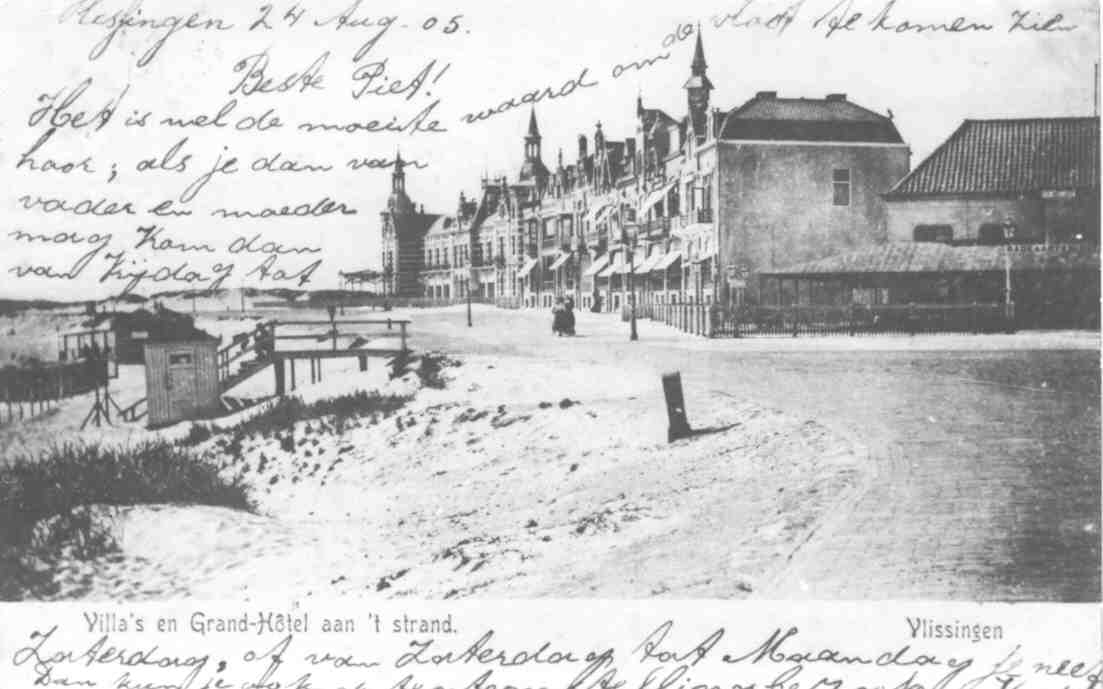 Vlissingen 24 Aug. 05.
Beste Piet!
Het is wel de moeite waard om de vloot te komen zien
hoor; als je dan van
vader en moeder
mag kom dan
van Vrijdag tot
Villa's en Grand-Hôtel aan 't strand.
Vlissingen
Zaterdag, of van Zaterdag tot Maandag
Dan kun je ook